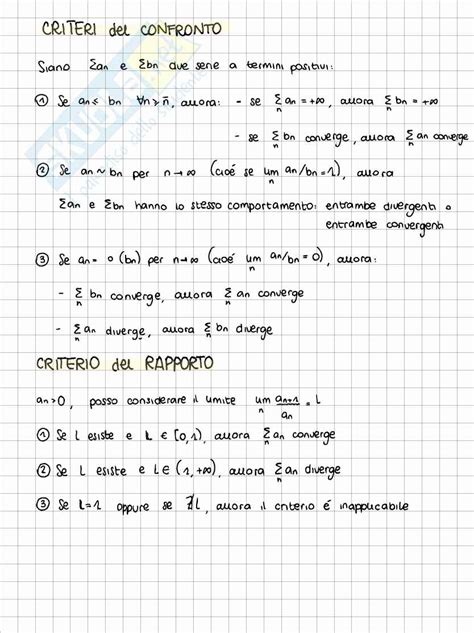 CRITERI del CONFRONTO
Siano Σan e Σbn due serie a termini positivi:
① Se an ≤ bn ∀n > n̄, allora: - se Σn an = +∞, allora Σn bn = +∞
- se Σn bn converge, allora Σn an converge
② Se an ~ bn per n→∞ (cioé se limn an/bn = 1), allora
Σan e Σbn hanno lo stesso comportamento: entrambe divergenti o
entrambe convergenti
③ Se an = o (bn) per n→∞ (cioé limn an/bn = 0), allora:
- Σn bn converge, allora Σn an converge
- Σn an diverge, allora Σn bn diverge
CRITERIO del RAPPORTO
an > 0, posso considerare il limite limn an+1/an = L
① Se L esiste e L ∈ [0,1), allora Σn an converge
② Se L esiste e L ∈ (1,+∞), allora Σn an diverge
③ Se L = 1 oppure se ∄L, allora il criterio é inapplicabile